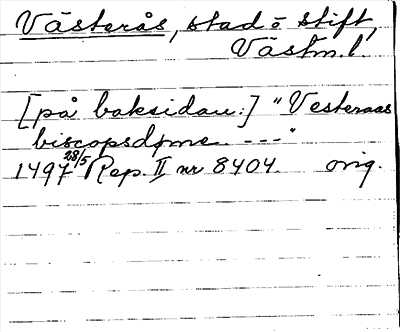 Västerås, stad o stift,
Västm.l.
[på baksidan:] "Vesteraas
biscopsdøme ---"
1497 28/5 Rep. II nr 8404. orig.